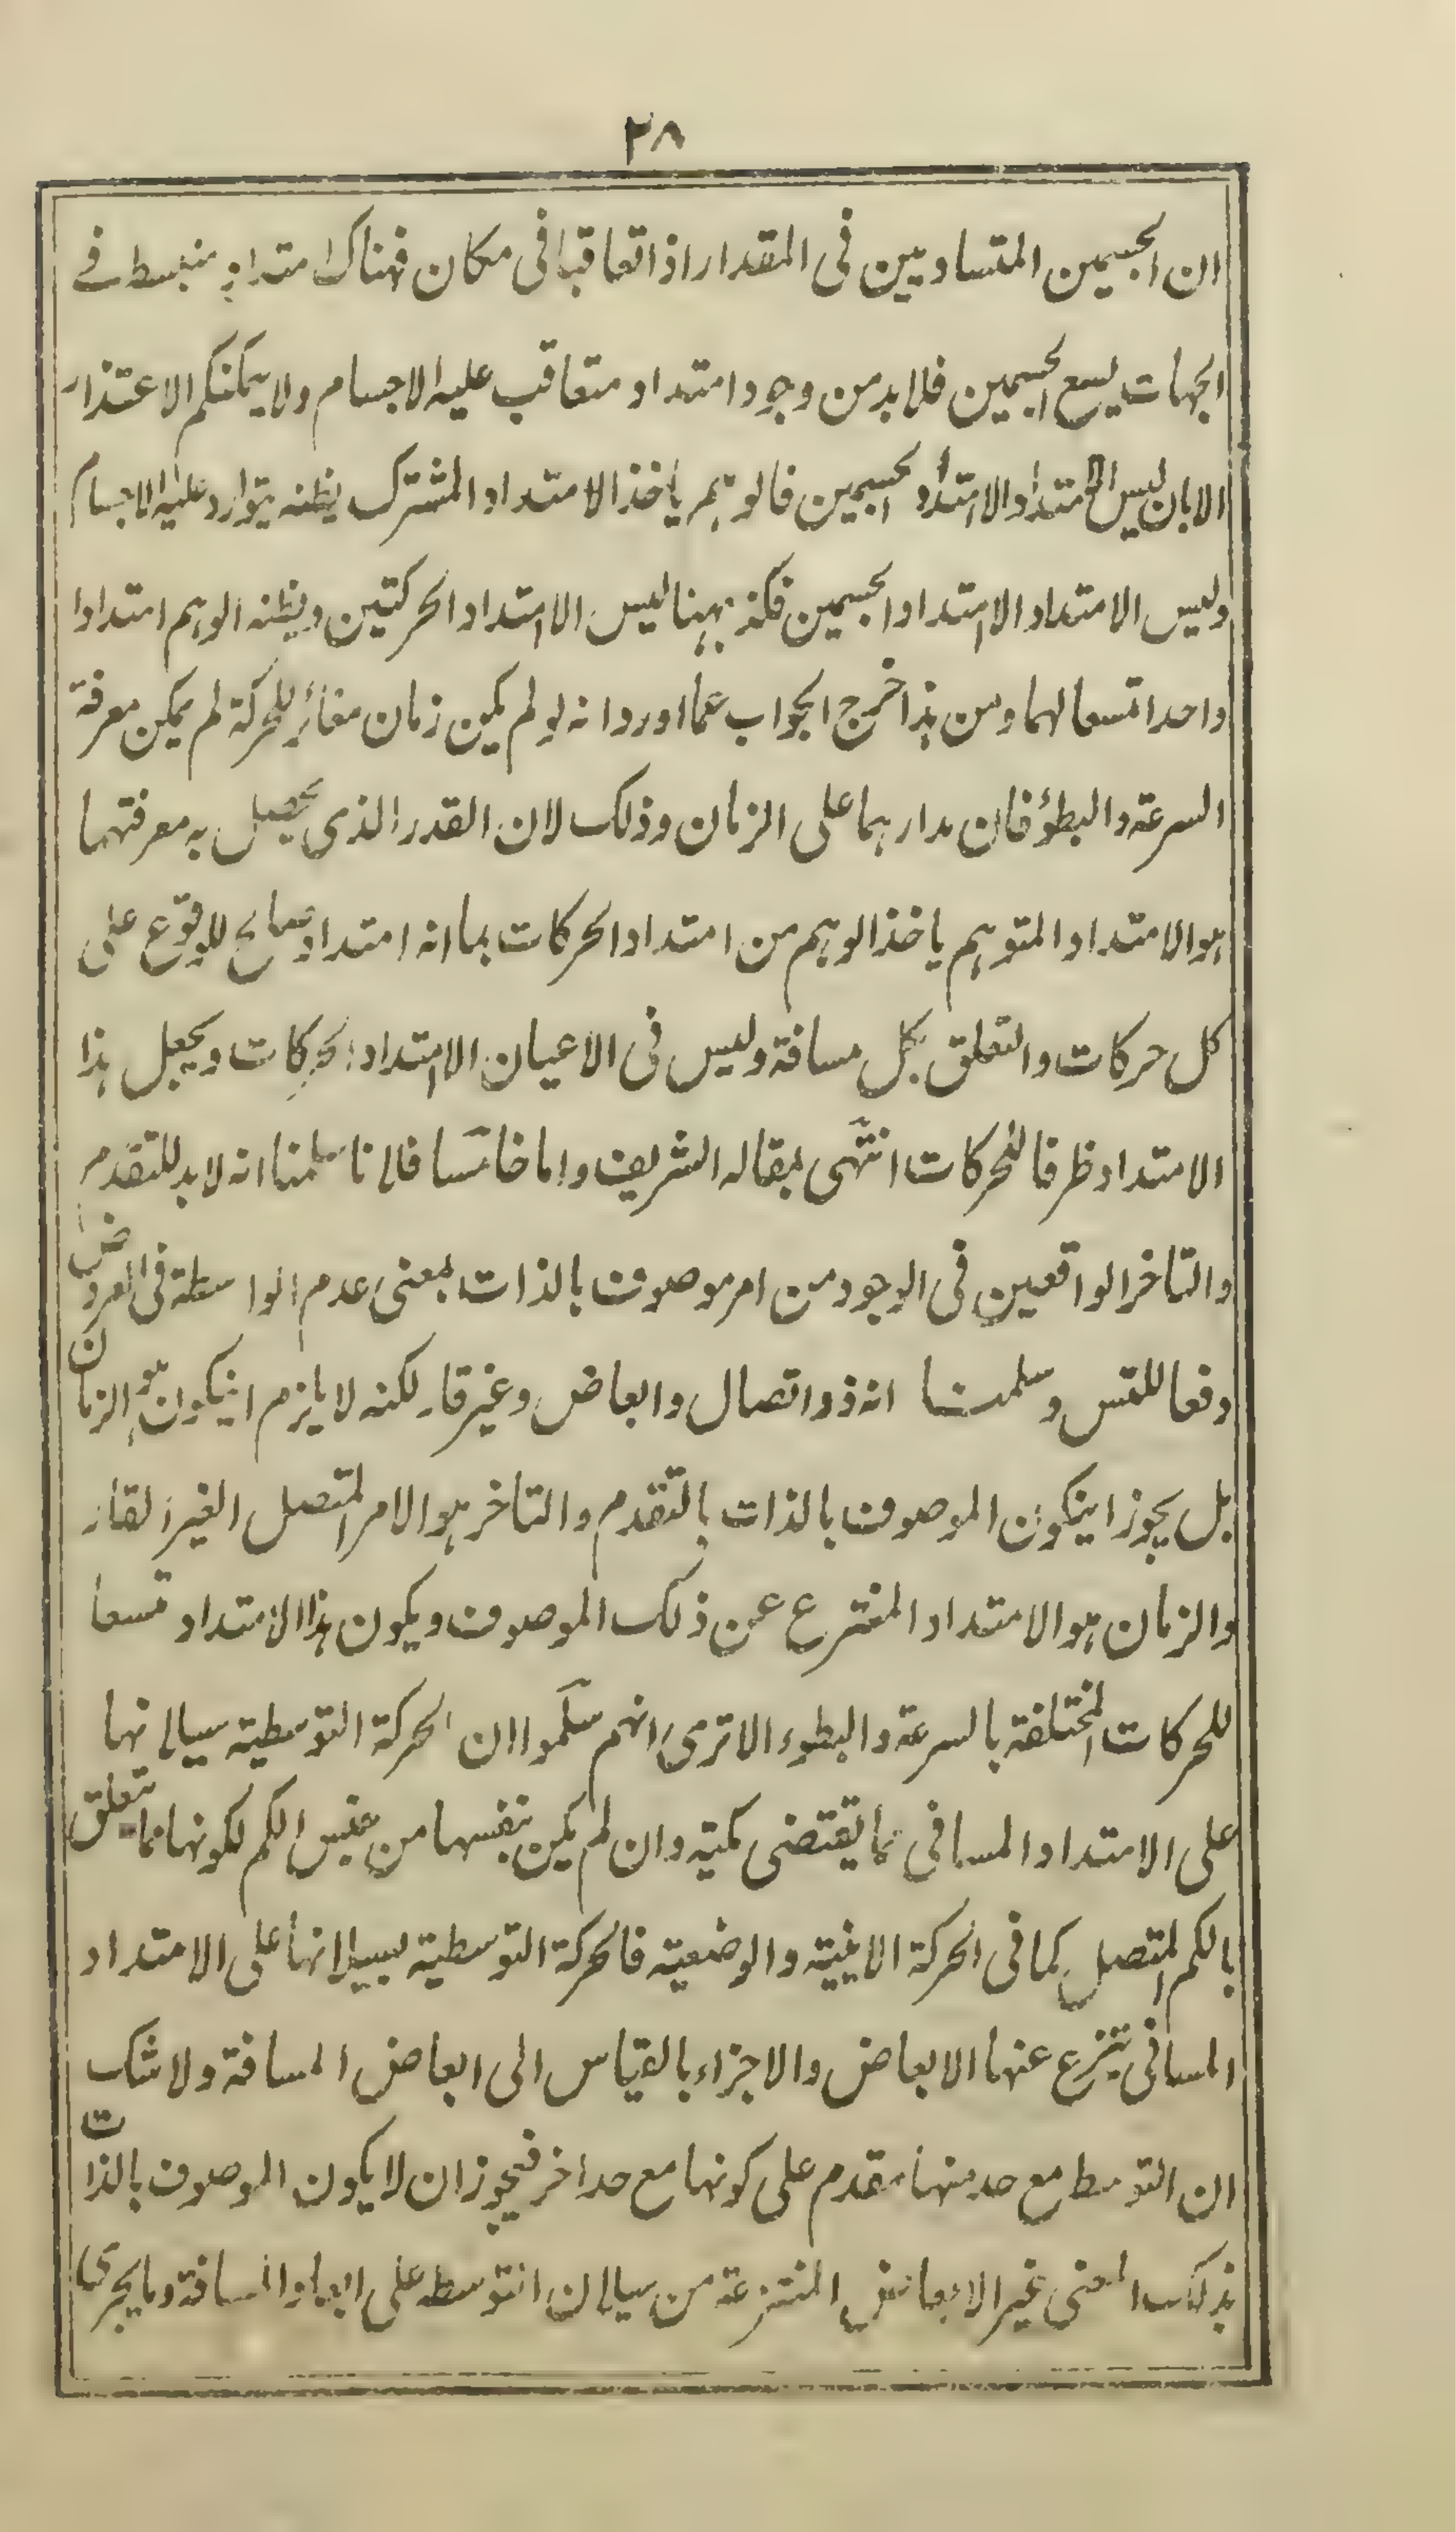 ٢٨
ان الجسمين المتساويين فى المقدار اذا تعاقبا فى مكان فهناك امتداد منبسط فے
الجهات يسع الجسمين فلابد من وجود امتداد متعاقب عليه الاجسام ولا يمكنكم الاعتذار
الا بان ليس الامتداد الا امتداد الجسمين فالوهم ياخذ الامتداد المشترك يظنه يتوارد عليه الاجسام
وليس الامتداد الا امتداد الجسمين فكذ ههنا ليس الا امتداد الحركتين ويظنه الوهم امتدادا
واحدا متسعا لهما ومن هذا خرج الجواب عما اورد انه لو لم يكن زمان مغائر للحركة لم يمكن معرفة
السرعة والبطؤ فان مدارهما على الزمان وذلك لان القدر الذى يحصل به معرفتهما
هو الامتداد المتوهم ياخذ الوهم من امتداد الحركات بما انه امتداد صالح للوقوع على
كل حركات والتعلق بكل مسافة وليس فى الاعيان الا امتداد الحركات ويجعل هذا
الامتداد ظرفا للحركات انتهى بمقاله الشريف واما خامسا فلانا سلمنا انه لابد للتقدم
والتاخر الواقعين فى الوجود من امر موصوف بالذات بمعنى عدم الواسطة فى العروض
دفعا للتس وسلمنا انه ذو اتصال وابعاض وغير قار لكنه لا يلزم اينكون هو الزمان
بل يجوز اينكون الموصوف بالذات بالتقدم والتاخر هو الامر المتصل الغير القار
والزمان هو الامتداد المنتزع عن ذلك الموصوف ويكون هذا الامتداد متسعا
للحركات المختلفة بالسرعة والبطوء الا ترى انهم سلموا ان الحركة التوسطية سيالانها
على الامتداد المسافى مما يقتضى كميته وان لم يكن بنفسها من جنس الكم لكونها مما يتعلق
بالكم المتصل كما فى الحركة الاينية والوضعية فالحركة التوسطية بسيلانها على الامتداد
المسافى ينتزع عنها الابعاض والاجزاء بالقياس الى ابعاض المسافة ولا شك
ان التوسط مع حد منها مقدم على كونها مع حد اخر فيجوز ان لا يكون الموصوف بالذات
بذلك المعنى غير الابعاض المنتزعة من سيلان التوسط على ابعاد المسافة وما يجرى